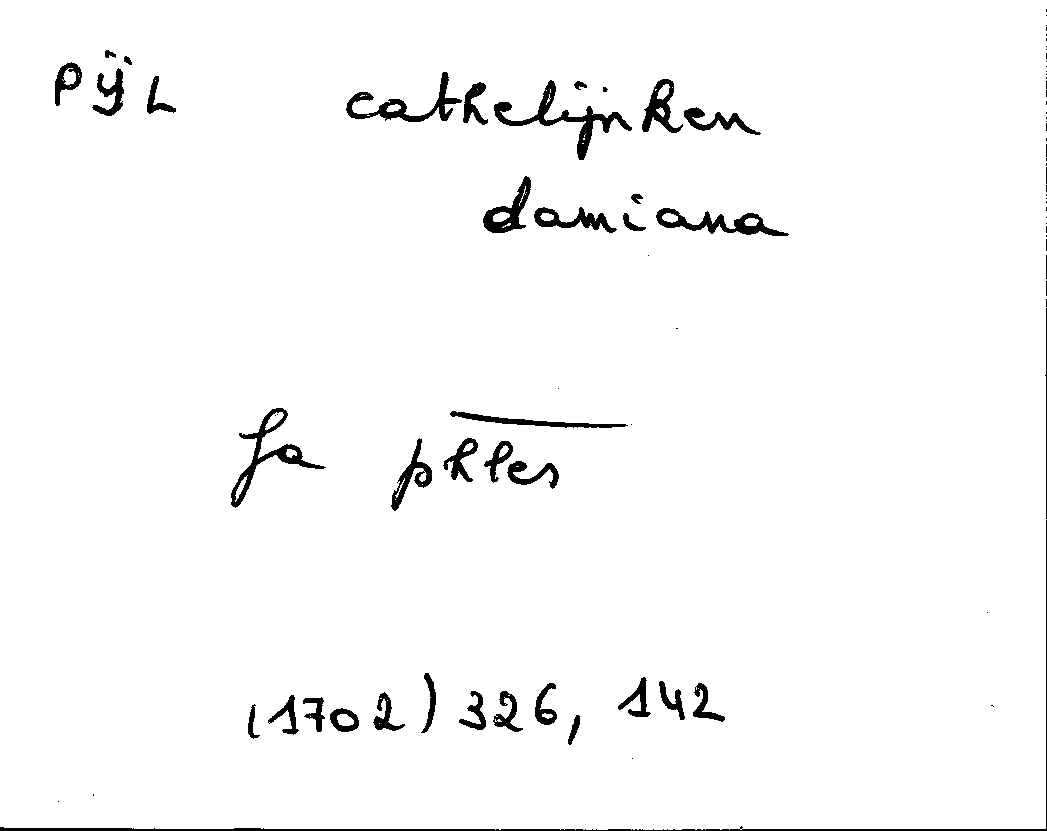 PŸL cathelijnken
damiana
fa phles
(1702) 326, 142